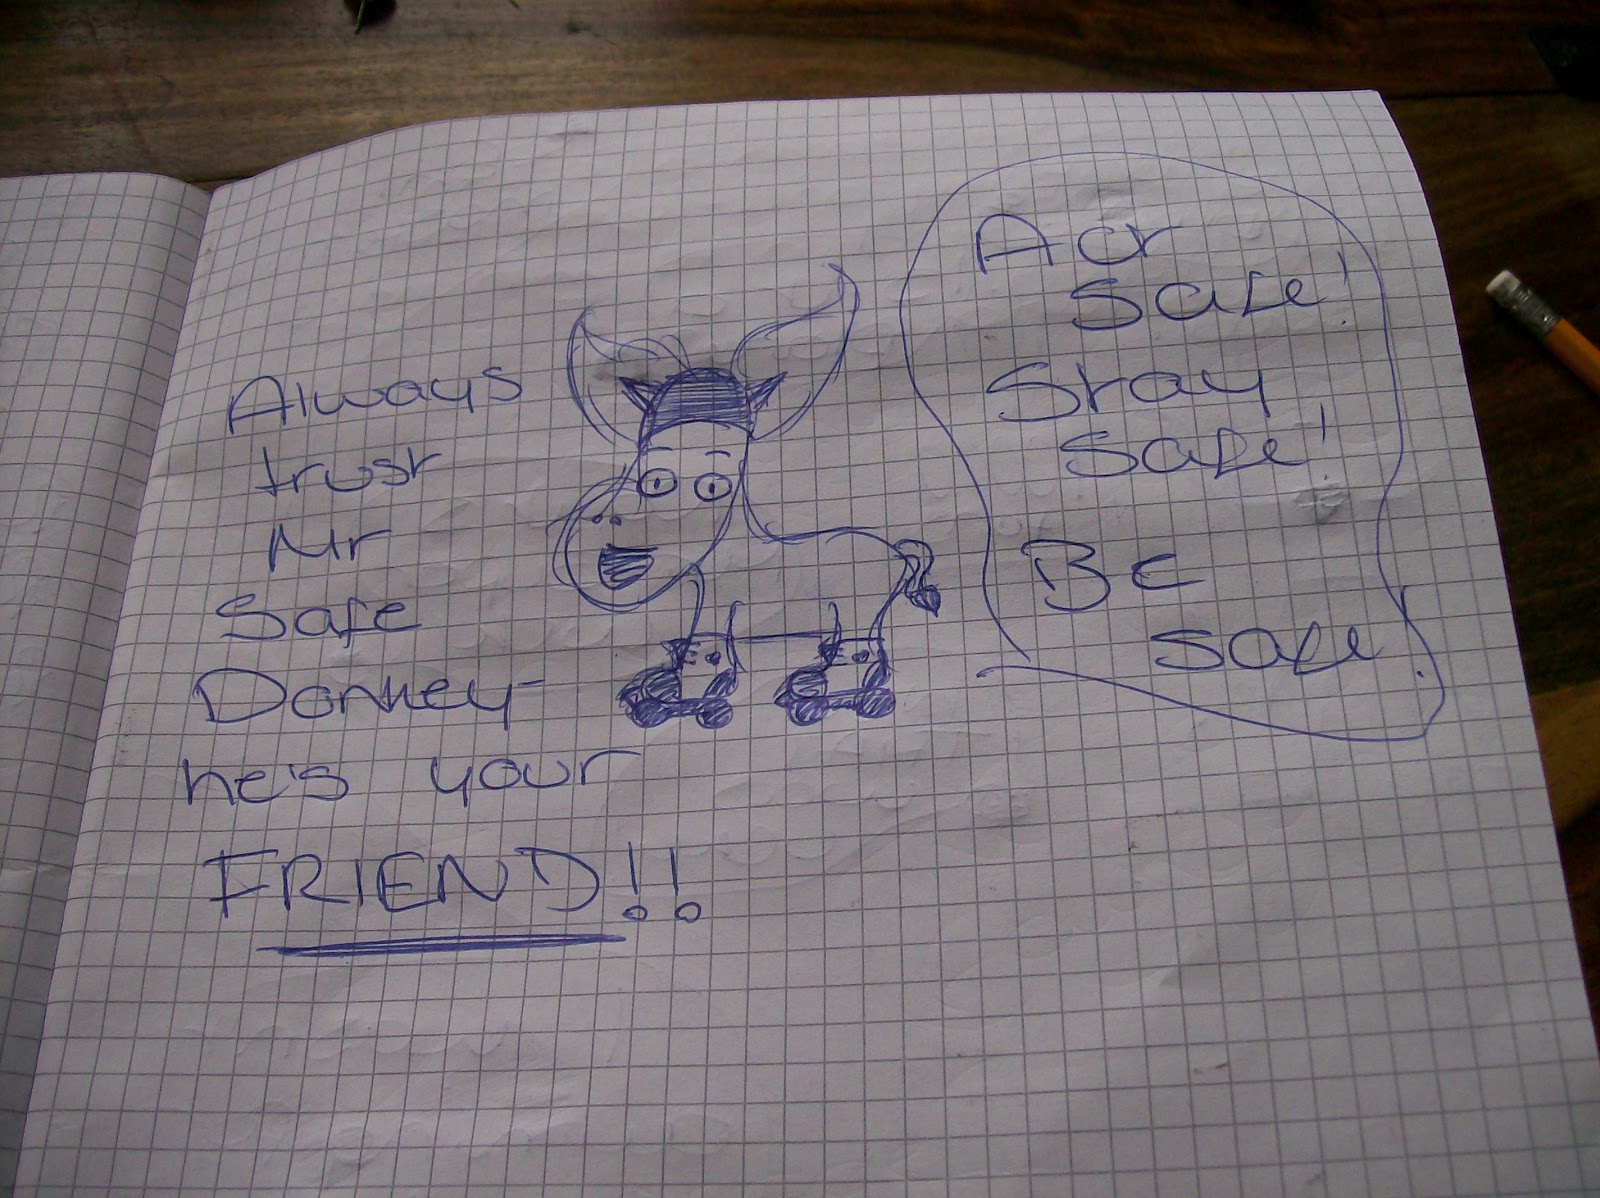 Always
trust
Mr
Safe
Donkey-
he's your
FRIEND!!
Act
Safe!
Stay
Safe!
Be
safe.